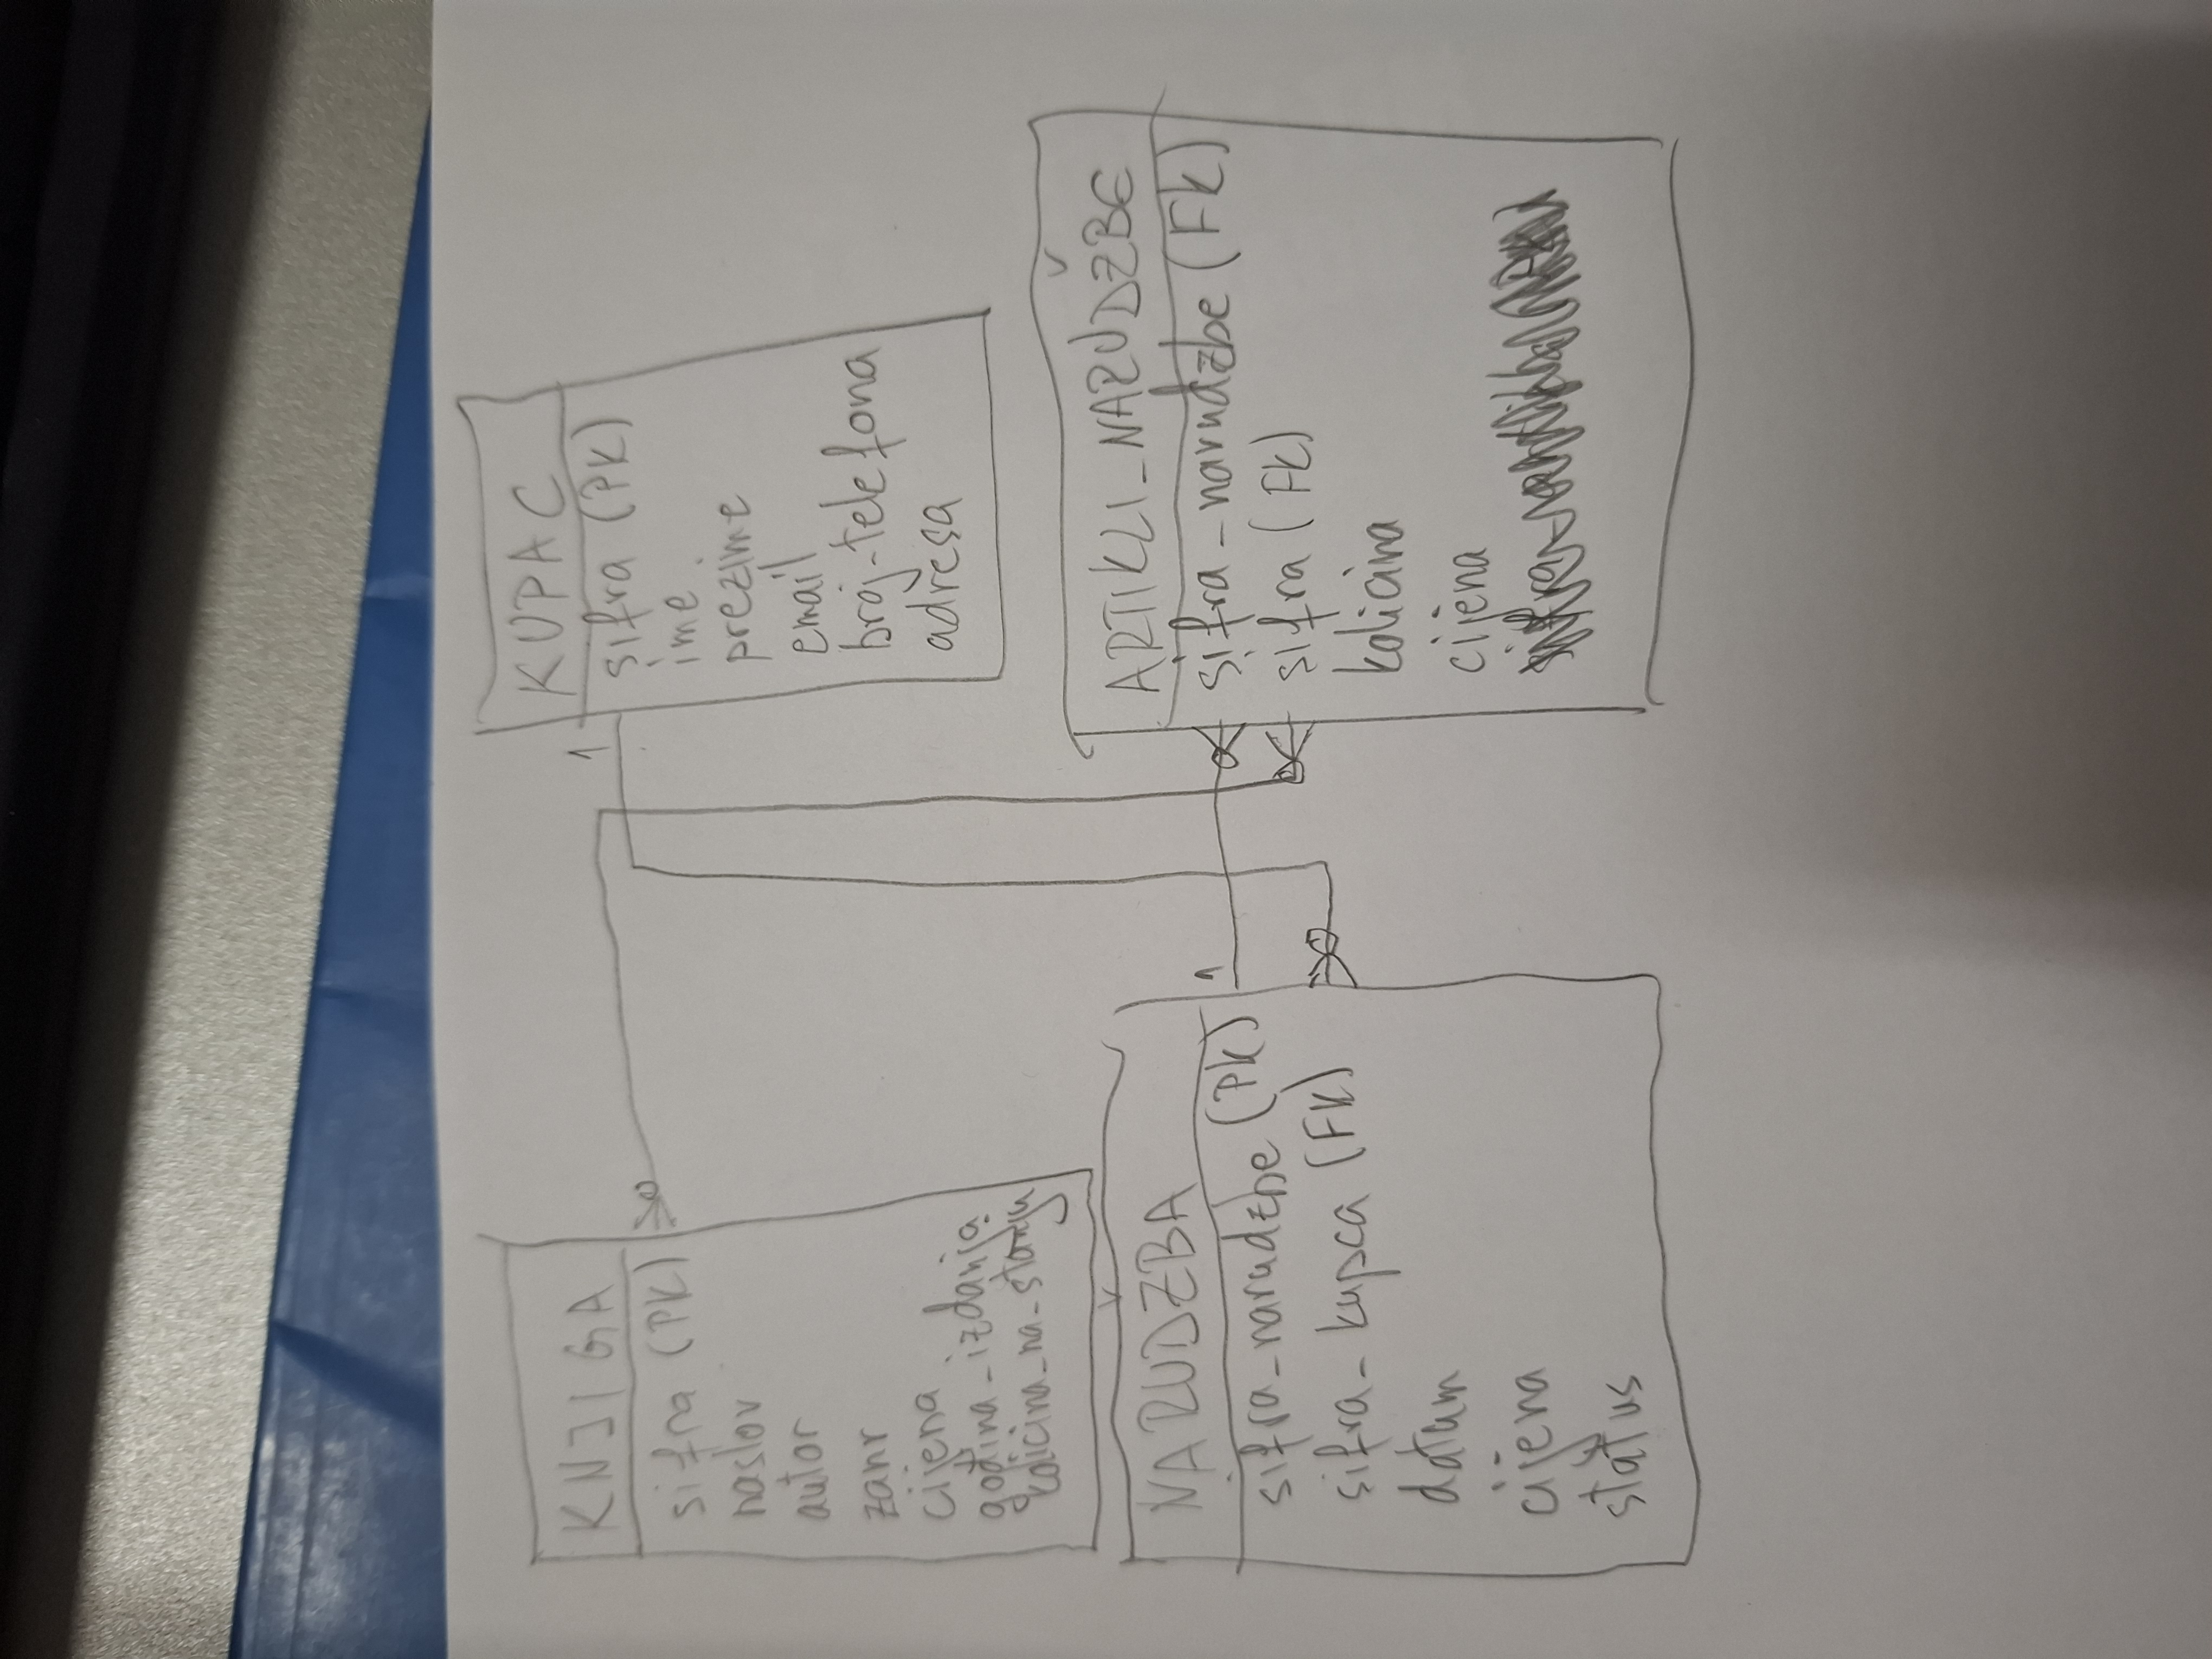 KNJIGA
sifra (PK)
naslov
autor
zanr
cijena
godina_izdanja
kolicina_na_stanju
1
KUPAC
sifra (PK)
ime
prezime
email
broj_telefona
adresa
NARUDŽBA
1
sifra_narudzbe (PK)
sifra_kupca (FK)
datum
cijena
status
ARTIKLI_NARUDŽBE
sifra_narudzbe (FK)
sifra (FK)
kolicina
cijena